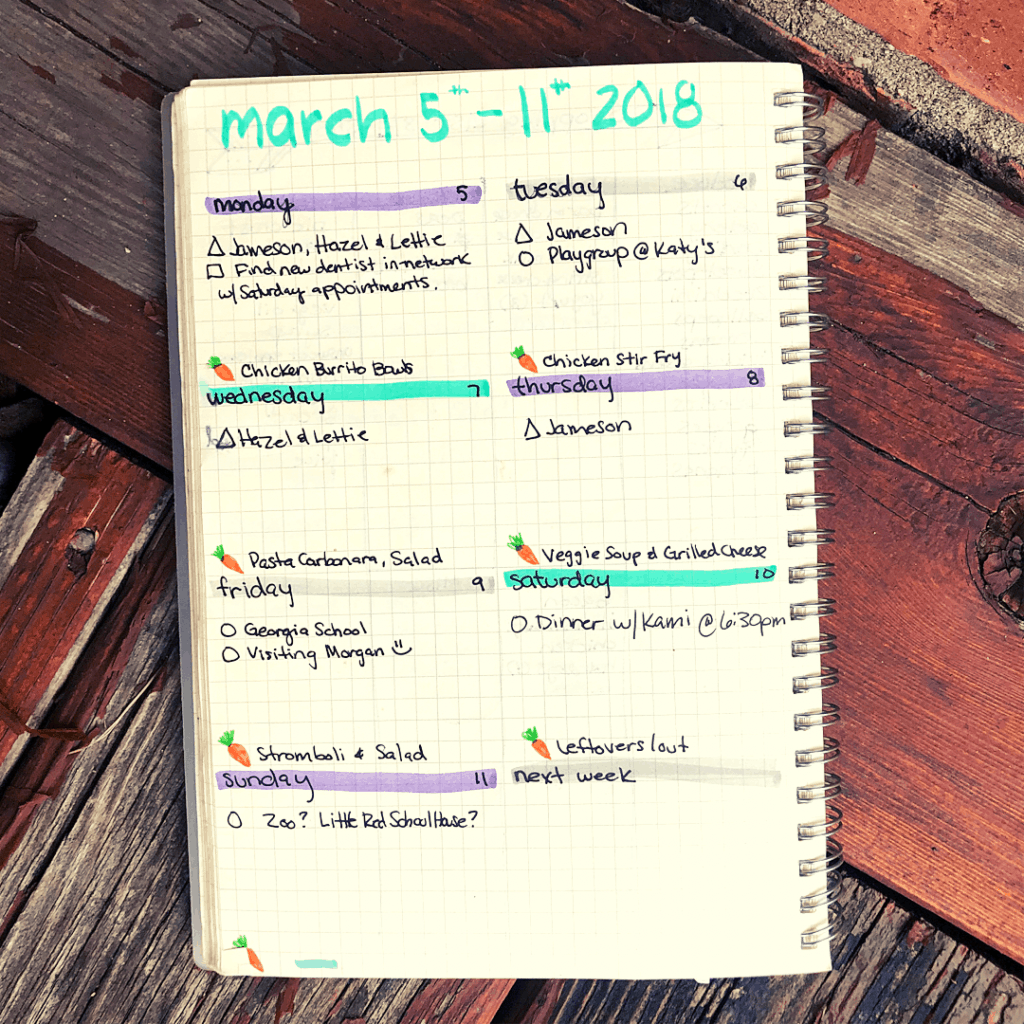 march 5th - 11th 2018
monday 5
△ Jameson, Hazel & Lettie
□ Find new dentist in-network
w/ Saturday appointments.
Chicken Burrito Bowls
tuesday 6
△ Jameson
○ Playgroup @ Katy's
Chicken Stir Fry
wednesday 7
△ Hazel & Lettie
Pasta Carbonara, Salad
thursday 8
△ Jameson
Veggie Soup & Grilled Cheese
friday 9
○ Georgia School
○ Visiting Morgan
Stromboli & Salad
saturday 10
○ Dinner w/ Kami @ 6:30pm
leftovers/out
sunday 11
○ Zoo? Little Red SchoolHouse?
next week